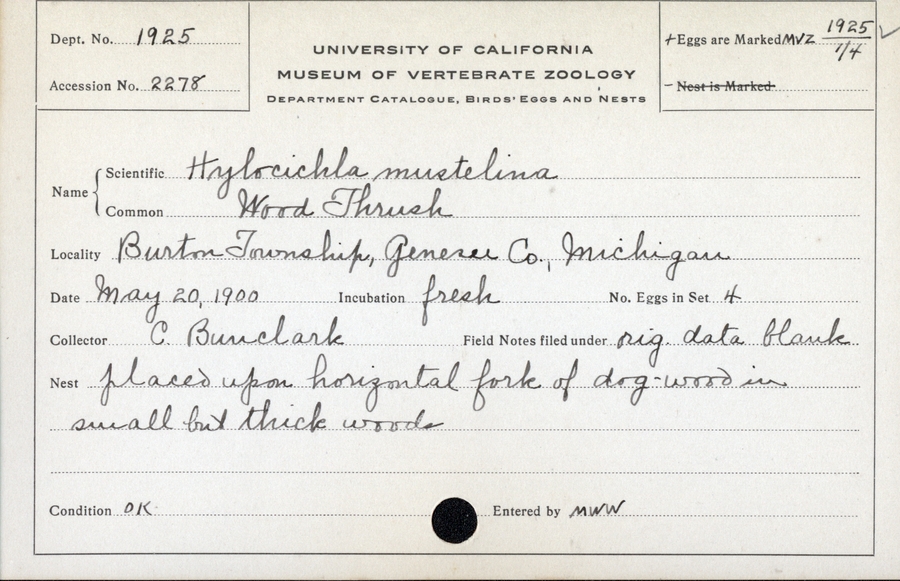 Dept. No. 1925
Accession No. 2278
UNIVERSITY OF CALIFORNIA
MUSEUM OF VERTEBRATE ZOOLOGY
DEPARTMENT CATALOGUE, BIRDS' EGGS AND NESTS
+ Eggs are Marked MVZ 1925 1/4 ✓
- Nest is Marked
Name { Scientific Hylocichla mustelina
Common Wood Thrush
Locality Burton Township, Genesee Co., Michigan
Date May 20, 1900 Incubation fresh No. Eggs in Set 4
Collector C. Bunclark Field Notes filed under orig. data blank
Nest placed upon horizontal fork of dog-wood in
small but thick woods
Condition OK Entered by MWW